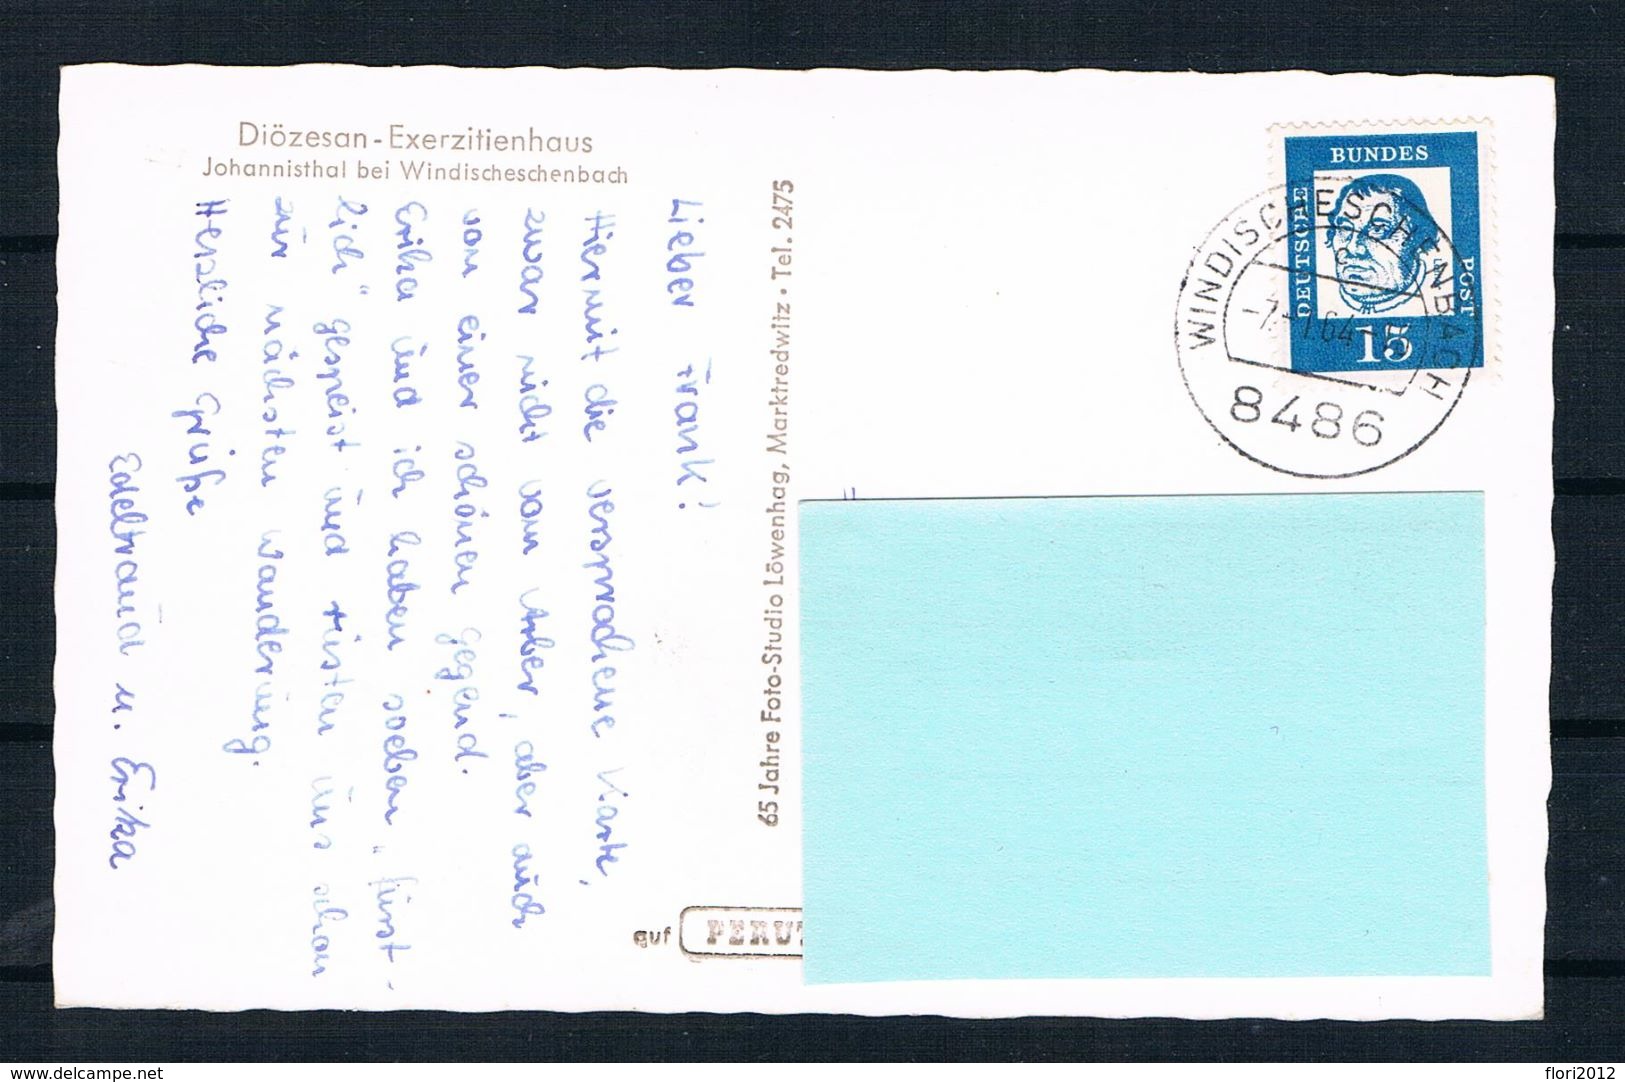 Diözesan-Exerzitienhaus
Johannisthal bei Windischeschenbach
Lieber Frank!
Hiermit die versprochene Karte,
zwar nicht vom Arber, aber auch
von einer schönen Gegend.
Erika und ich haben soeben „fürst-
lich" gespeist und rüsten uns schon
zur nächsten Wanderung.
Herzliche Grüße
Edeltraud u. Erika
65 Jahre Foto-Studio Löwenhag, Marktredwitz • Tel. 2475
auf PERUT
BUNDES
DEUTSCHE
POST
15
WINDISCHESCHENBACH
8486
www.delcampe.net
flori2012